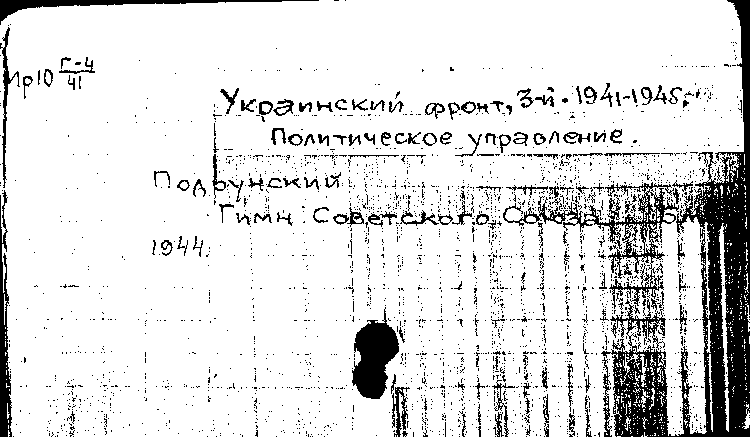 Ир10 Г-4/41
Украинский фронт, 3-й. 1941-1945.
Политическое управление.
Подрунский
Гимн Советского Союза
1944.